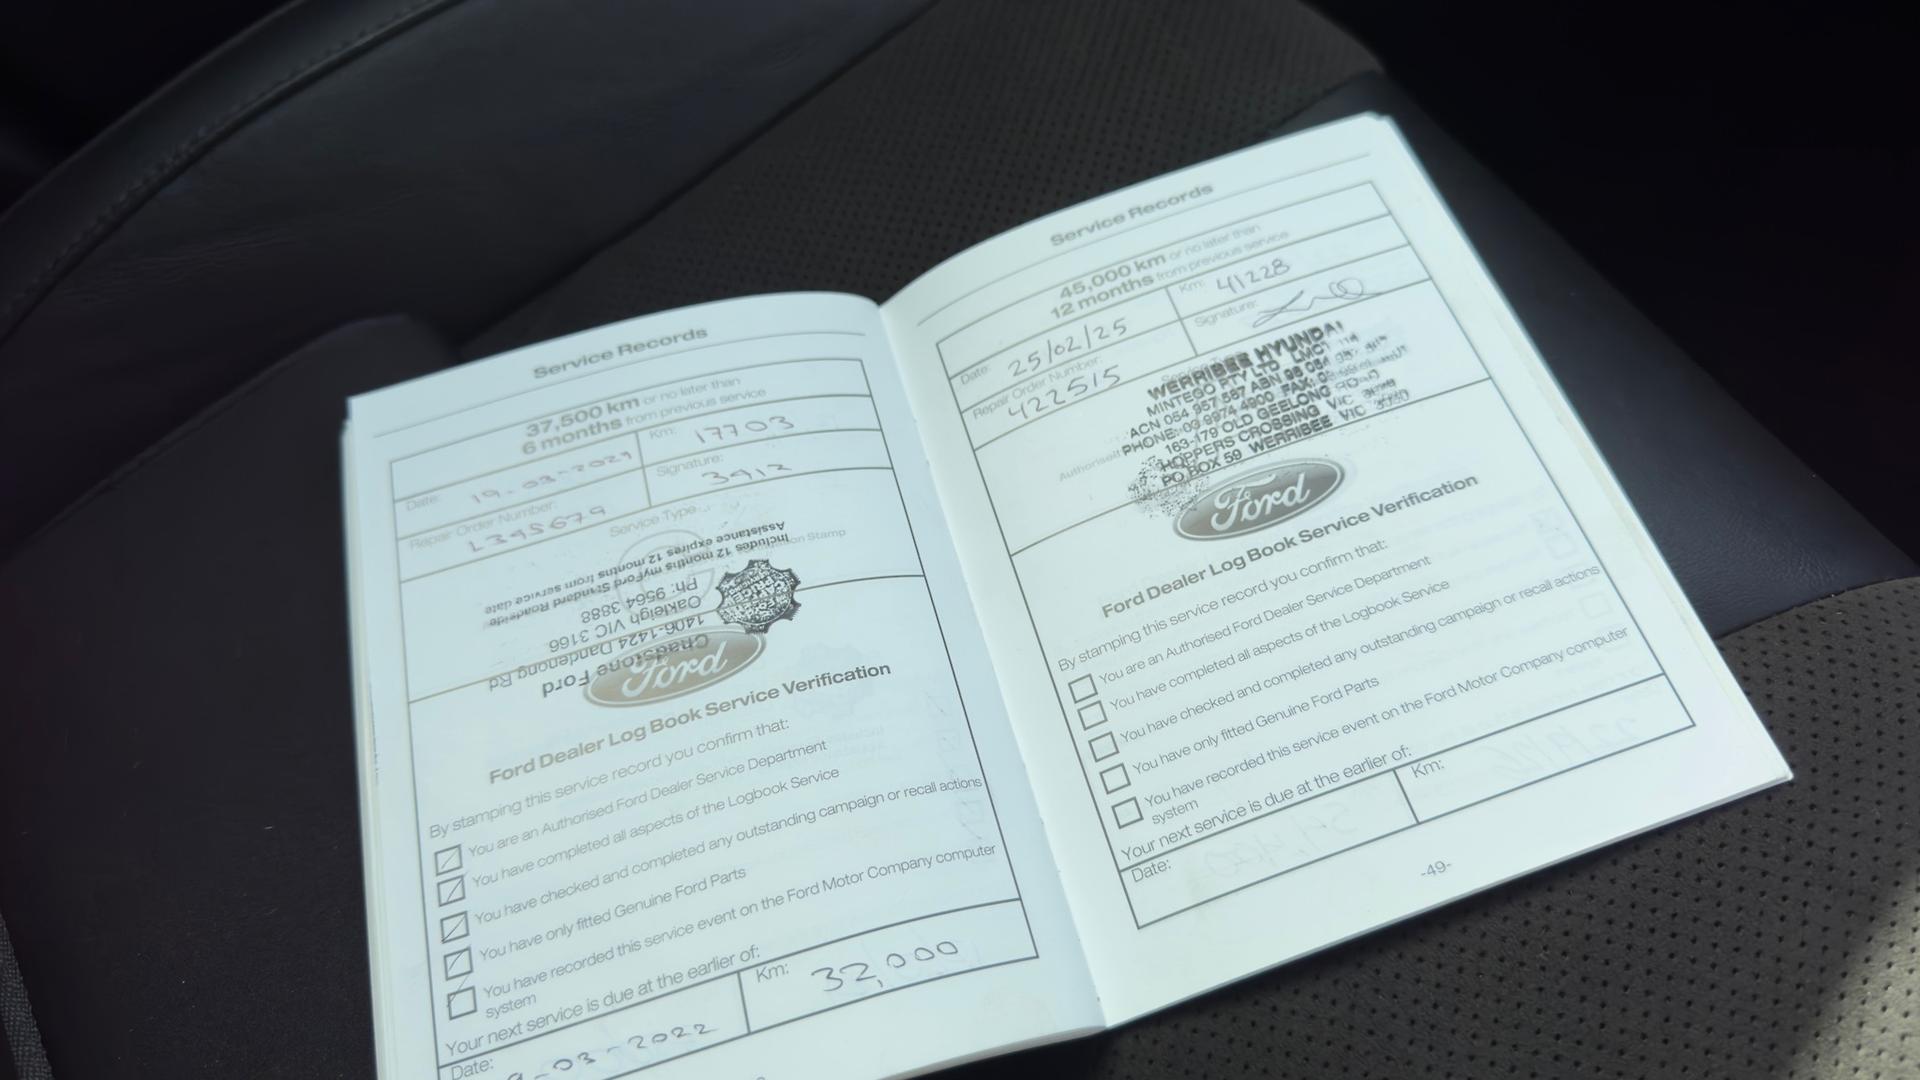 Service Records
37,500 km or no later than
6 months from previous service
Date: 19-03-2021
Km: 17703
Repair Order Number: L395679
Signature: 3912
Service Type
Chadstone Ford
1406-1424 Dandenong Rd
Oakleigh VIC 3166
Ph: 9564 3888
Includes 12 months myFord Standard Roadside
Assistance expires 12 months from service date
Stamp
Ford
Ford Dealer Log Book Service Verification
By stamping this service record you confirm that:
You are an Authorised Ford Dealer Service Department
You have completed all aspects of the Logbook Service
You have checked and completed any outstanding campaign or recall actions
You have only fitted Genuine Ford Parts
You have recorded this service event on the Ford Motor Company computer
system
Your next service is due at the earlier of:
Date: 9-03-2022
Km: 32,000
Service Records
45,000 km or no later than
12 months from previous service
Date: 25/02/25
Km: 41228
Repair Order Number: 422515
Signature:
WERRIBEE HYUNDAI
MINTEGO PTY LTD LMCT
ACN 054 957 587 ABN 98 054
PHONE: 03 9974 4900 FAX:
163-179 OLD GEELONG ROAD
HOPPERS CROSSING VIC
PO BOX 59 WERRIBEE VIC 3030
Authorised
Ford
Ford Dealer Log Book Service Verification
By stamping this service record you confirm that:
You are an Authorised Ford Dealer Service Department
You have completed all aspects of the Logbook Service
You have checked and completed any outstanding campaign or recall actions
You have only fitted Genuine Ford Parts
You have recorded this service event on the Ford Motor Company computer
system
Your next service is due at the earlier of:
Date:
Km:
-49-